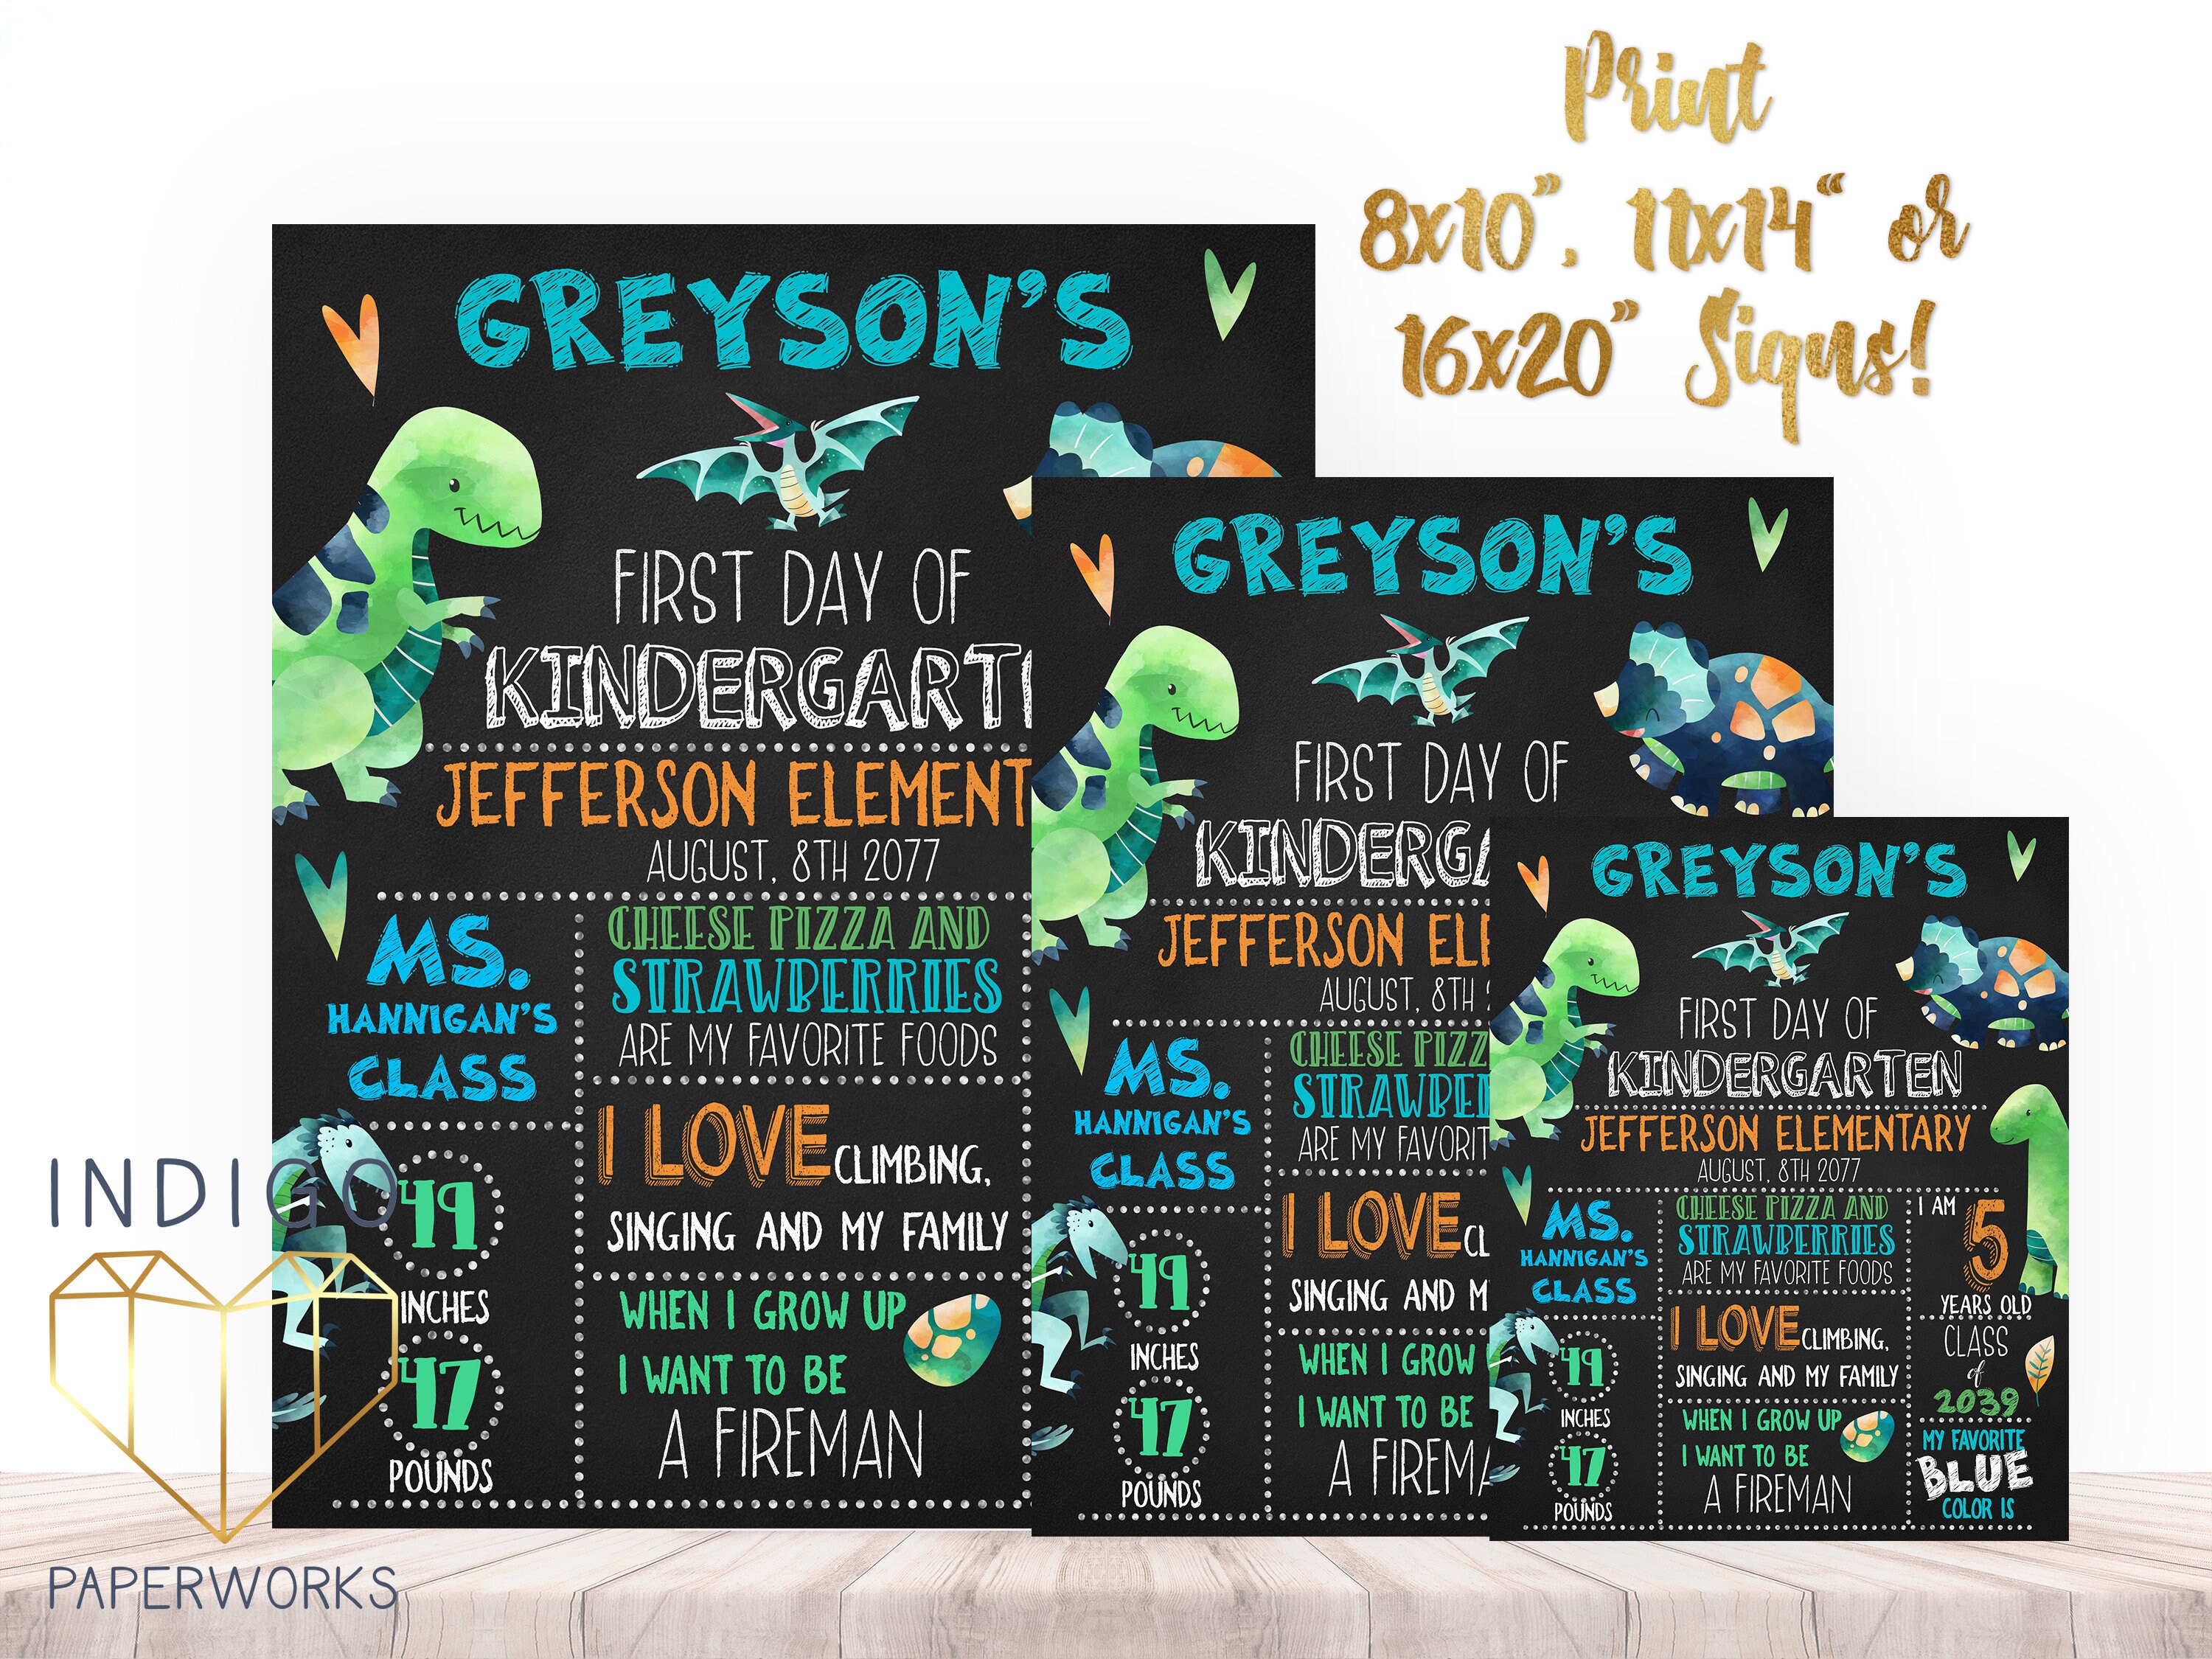 Print
8x10", 11x14" or
16x20" Signs!
GREYSON'S
FIRST DAY OF
KINDERGARTE
JEFFERSON ELEMENT
AUGUST, 8TH 2077
MS.
HANNIGAN'S
CLASS
49
INCHES
47
POUNDS
CHEESE PIZZA AND
STRAWBERRIES
ARE MY FAVORITE FOODS
I LOVE CLIMBING,
SINGING AND MY FAMILY
WHEN I GROW UP
I WANT TO BE
A FIREMAN
GREYSON'S
FIRST DAY OF
KINDERGA
JEFFERSON ELE
AUGUST, 8TH
MS.
HANNIGAN'S
CLASS
49
INCHES
47
POUNDS
CHEESE PIZZ
STRAWBE
ARE MY FAVORIT
I LOVE CL
SINGING AND M
WHEN I GROW
I WANT TO BE
A FIREM
GREYSON'S
FIRST DAY OF
KINDERGARTEN
JEFFERSON ELEMENTARY
AUGUST, 8TH 2077
MS.
HANNIGAN'S
CLASS
49
INCHES
47
POUNDS
CHEESE PIZZA AND
STRAWBERRIES
ARE MY FAVORITE FOODS
I LOVE CLIMBING,
SINGING AND MY FAMILY
WHEN I GROW UP
I WANT TO BE
A FIREMAN
I AM
5
YEARS OLD
CLASS
of
2039
MY FAVORITE
BLUE
COLOR IS
INDIGO
PAPERWORKS